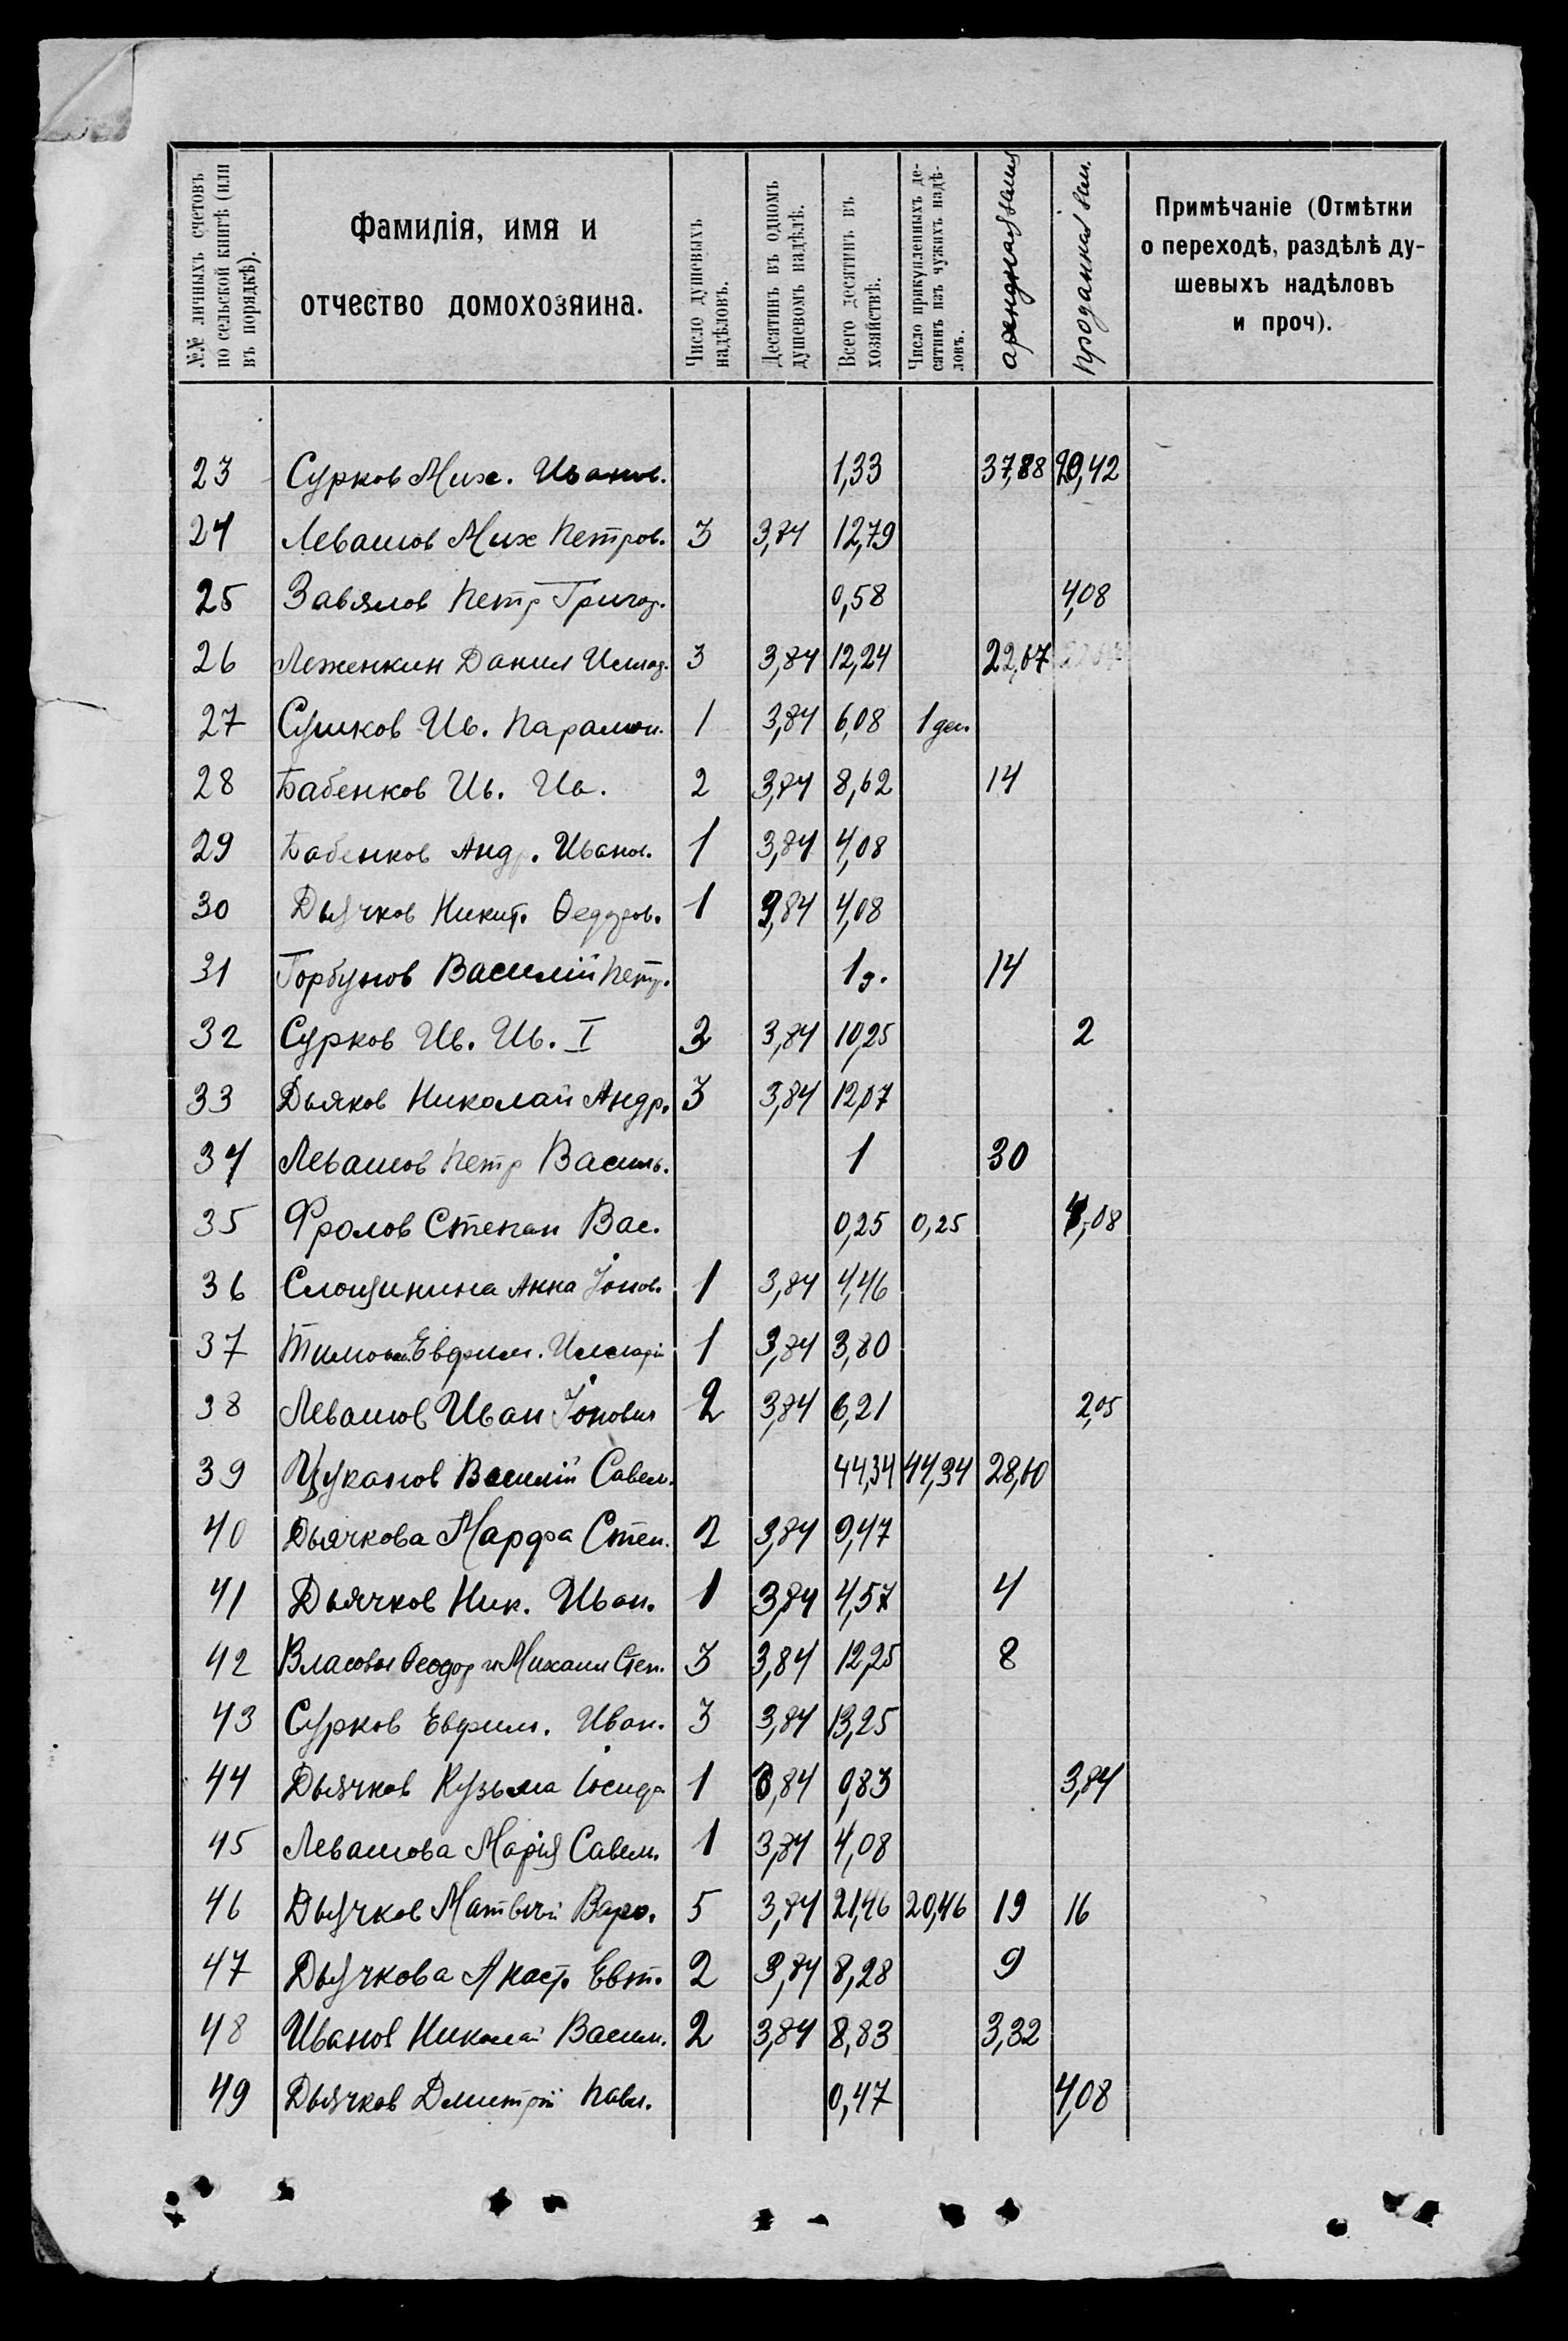 №№ личныхъ счетовъ
по сельской книгѣ (или
въ порядкѣ).
Фамилія, имя и
отчество домохозяина.
Число душевыхъ
надѣловъ.
Десятинъ въ одномъ
душевомъ надѣлѣ.
Всего десятинъ въ
хозяйствѣ.
Число прикупленныхъ де-
сятинъ изъ чужихъ надѣ-
ловъ.
арендная земля
проданная зем.
Примѣчаніе (Отмѣтки
о переходѣ, раздѣлѣ ду-
шевыхъ надѣловъ
и проч).
23 Сурков Мих. Иванов. 1,33 37,88 20,42
24 Левашов Мих Петров. 3 3,84 12,79
25 Завялов Петр Григор. 0,58 4,08
26 Леженкин Данил 3 3,84 12,24 22,67
27 Сушков Ив. Парамон. 1 3,84 6,08 1 дес
28 Бабенков Ив. Ив. 2 3,84 8,62 14
29 Бабенков Андр. Иванов. 1 3,84 4,08
30 Дьячков Никит. Ѳеодоров. 1 3,84 4,08
31 Горбунов Василій Петр. 1 д. 14
32 Сурков Ив. Ив. I 3 3,84 10,25 2
33 Дьяков Николай Андр. 3 3,84 12,07
34 Левашов Петр Василь. 1 30
35 Фролов Степан Вас. 0,25 0,25 4,08
36 Анна Іонов. 1 3,84 4,46
37 Евфим. 1 3,84 3,80
38 Левашов Иван Іонович 2 3,84 6,21 2,05
39 Цуканов Василій Савел. 44,34 44,34 28,60
40 Дьячкова Марфа Степ. 2 3,84 9,47
41 Дьячков Ник. Иван. 1 3,84 4,57 4
42 Власовы Ѳеодор и Михаил Степ. 3 3,84 12,25 8
43 Сурков Евфим. Иван. 3 3,84 13,25
44 Дьячков Кузьма Іосифо 1 3,84 0,83 3,84
45 Левашова Марія Савел. 1 3,84 4,08
46 Дьячков Матвѣй Варф. 5 3,84 21,46 20,46 19 16
47 Дьячкова Анаст. Евт. 2 3,84 8,28 9
48 Иванов Николай Васил. 2 3,84 8,83 3,32
49 Дьячков Дмитрій Павл. 0,47 4,08